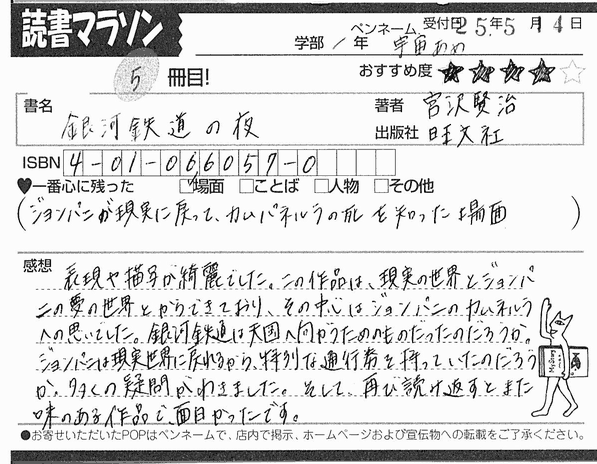 読書マラソン
ペンネーム 受付日 25年5月14日
学部 1年 宇宙あめ
5 冊目!
おすすめ度 ★★★★☆
書名
銀河鉄道の夜
著者 宮沢賢治
出版社 旺文社
ISBN 4-01-066057-0
♥一番心に残った □場面 □ことば □人物 □その他
(ジョバンニが現実に戻って、カムパネルラの死を知った場面)
感想
表現や描写が綺麗でした。この作品は、現実の世界とジョンバ
ニの夢の世界とからできており、その中心はジョンバニのカムネルラ
への思いでした。銀河鉄道は天国へ向かうためのものだったのだろうか。
ジョンバニは現実世界に戻れるから、特別な通行券を持っていたのだろう
か。多くの疑問がわきました。そして、再び読み返すとまた
味のある作品で、面白かったです。
●お寄せいただいたPOPはペンネームで、店内で掲示、ホームページおよび宣伝物への転載をご了承ください。